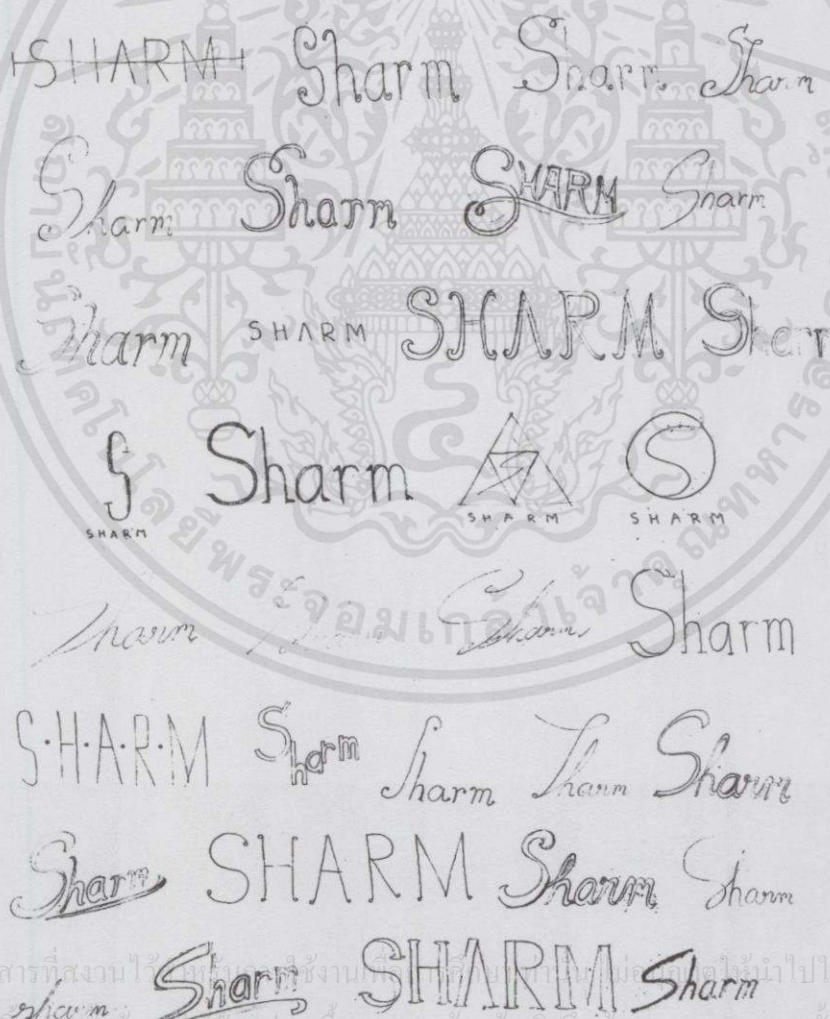 SHARM Sharm Sharm Sharm
Sharm Sharm SHARM Sharm
Sharm SHARM SHARM Shar
S Sharm S S
SHARM SHARM SHARM
Sharm Sharm Sharm
S·H·A·R·M Sharm Sharm Sharm Sharm
Sharm SHARM Sharm Sharm
Sharm Sharm SHARM Sharm
เทคโนโลยีพระจอมเกล้าเจ้าคุณทหาร